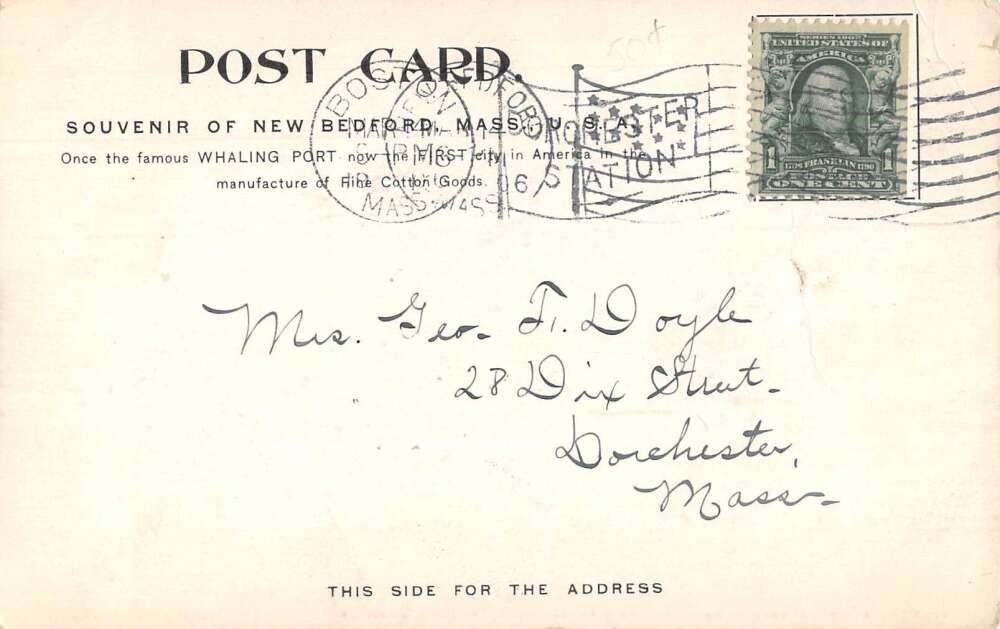 50¢
POST CARD.
SOUVENIR OF NEW BEDFORD, MASS., U. S. A.
Once the famous WHALING PORT now the FIRST city in America in the
manufacture of Fine Cotton Goods.
BOSTON
MASS.
BEDFORD
MASS
06
DORCHESTER
STATION
SERIES 1902
UNITED STATES OF
AMERICA
1 1706 FRANKLIN 1790 1
POSTAGE
ONE CENT
Mrs. Geo. F. Doyle
28 Dix Street.
Dorchester,
Mass.
THIS SIDE FOR THE ADDRESS